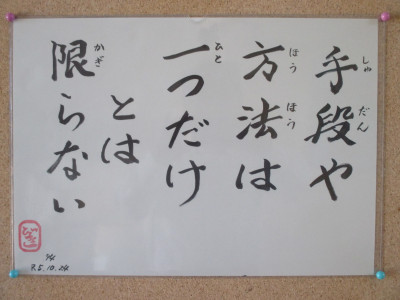 手段や
しゅ だん
方法は
ほう ほう
一つだけ
ひと
とは
限らない
かぎ